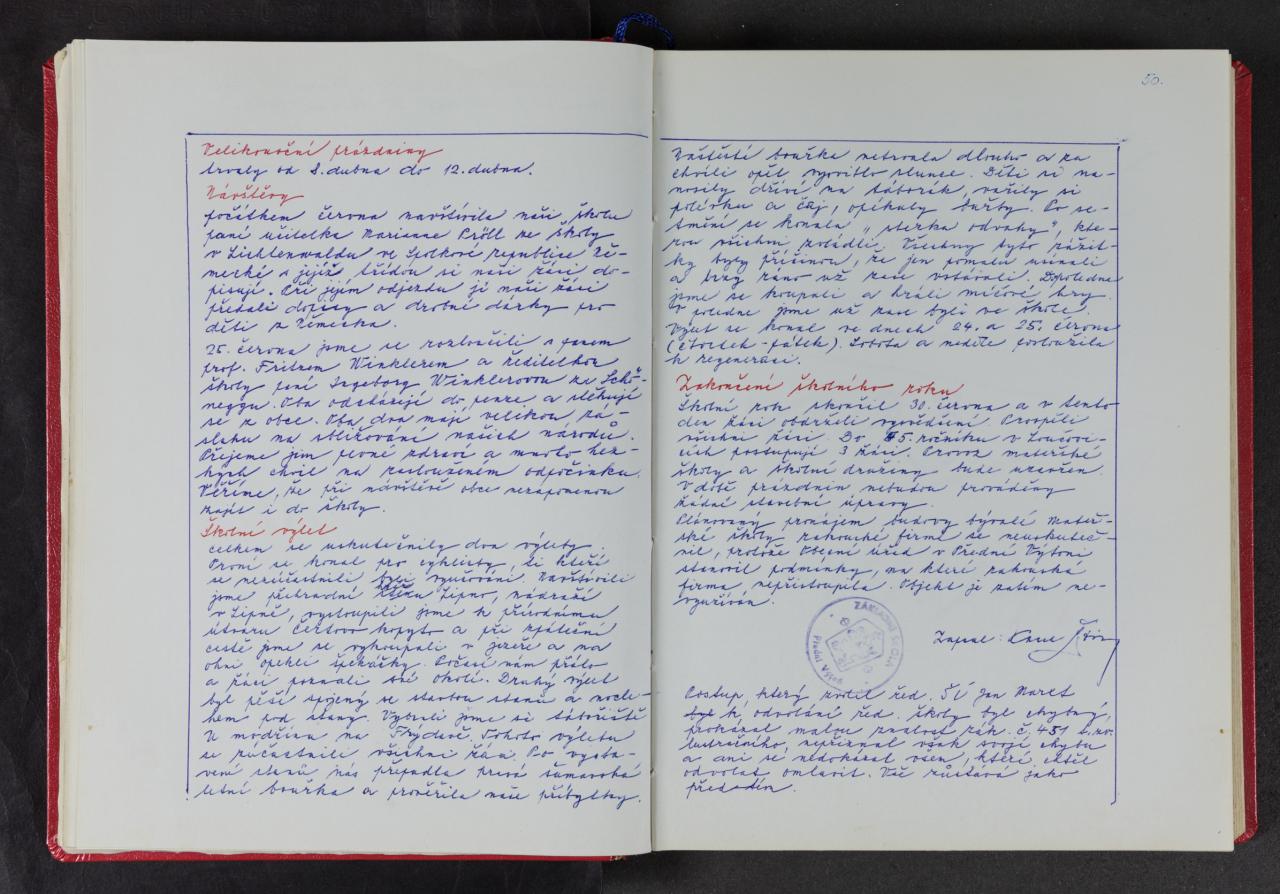 Velikonoční prázdniny
trvaly od 8. dubna do 12. dubna.
Návštěvy
počátkem června navštívila naši školu
paní učitelka Marianne Pröll ze školy
v Lichtenwaldu ve Spolkové republice Ně-
mecké s jejíž třídou si naši žáci do-
pisují. Při jejím odjezdu jí naši žáci
předali dopisy a drobné dárky pro
děti z Německa.
25. června jsme se rozloučili s panem
prof. Fritzem Winklerem a ředitelkou
školy paní Ingeborg Winklerovou ze Schö-
neggu. Oba odcházejí do penze a stěhují
se z obce. Oba dva mají velikou zá-
sluhu na sbližování našich národů.
Přejeme jim pevné zdraví a mnoho hez-
kých chvil na zaslouženém odpočinku.
Věříme, že při návštěvě obce nezapomenou
zajít i do školy.
Školní výlet
celkem se uskutečnily dva výlety.
První se konal pro cyklisty, ti kteří
se nezúčastnili byli vyučováni. Navštívili
jsme přehradní Lipno, nádraží
v Lipně, vystoupili jsme k přírodnímu
útvaru Čertovo kopyto a při zpáteční
cestě jsme se vykoupali v jezeře a na
ohni opekli špekáčky. Počasí nám přálo
a žáci poznali své okolí. Druhý výlet
byl pěší spojený se stavbou stanů a nocle-
hem pod stany. Vybrali jsme si tábořiště
U modřínu na Frydavě. Tohoto výletu
se zúčastnili všichni žáci. Po vysta-
vení stanů nás přepadla pravá šumavská
letní bouřka a prověřila naše příbytky.
50.
Naštěstí bouřka netrvala dlouho a za
chvíli opět vysvitlo slunce. Děti si na-
nosily dříví na táborák, vařily si
polévku a čaj, opékaly buřty. Po se-
tmění se konala „stezka odvahy", kte-
rou všichni zvládli. Všechny tyto zážit-
ky byly příčinou, že jen pomalu usínali
a brzy ráno už zase vstávali. Dopoledne
jsme se koupali a hráli míčové hry.
V poledne jsme už zase byli ve škole.
Výlet se konal ve dnech 24. a 25. června
(čtvrtek - pátek). Sobota a neděle posloužila
k regeneraci.
Zakončení školního roku
Školní rok skončil 30. června a v tento
den žáci obdrželi vysvědčení. Prospěli
všichni žáci. Do 5. ročníku v Loučovi-
cích postupují 3 žáci. Provoz mateřské
školy a školní družiny bude uzavřen.
V době prázdnin nebudou prováděny
žádné stavební úpravy.
Plánovaný pronájem budovy bývalé mateř-
ské školy rakouské firmě se neuskuteč-
nil, protože Obecní úřad v Přední Výtoni
stanovil podmínky, na které rakouská
firma nepřistoupila. Objekt je zatím ne-
využíván.
ZÁKLADNÍ ŠKOLA
Přední Výtoň
Zapsal:
Postup, který zvolil řed. ŠÚ Jan Mareš
byl k odvolání řed. školy byl chybný,
prokázal malou znalost zák. č. 451 t.zv.
lustračního, nepřiznal však svoji chybu
a ani se nedokázal všem, které chtěl
odvolat omluvit. Vše zůstává jako
předtím.